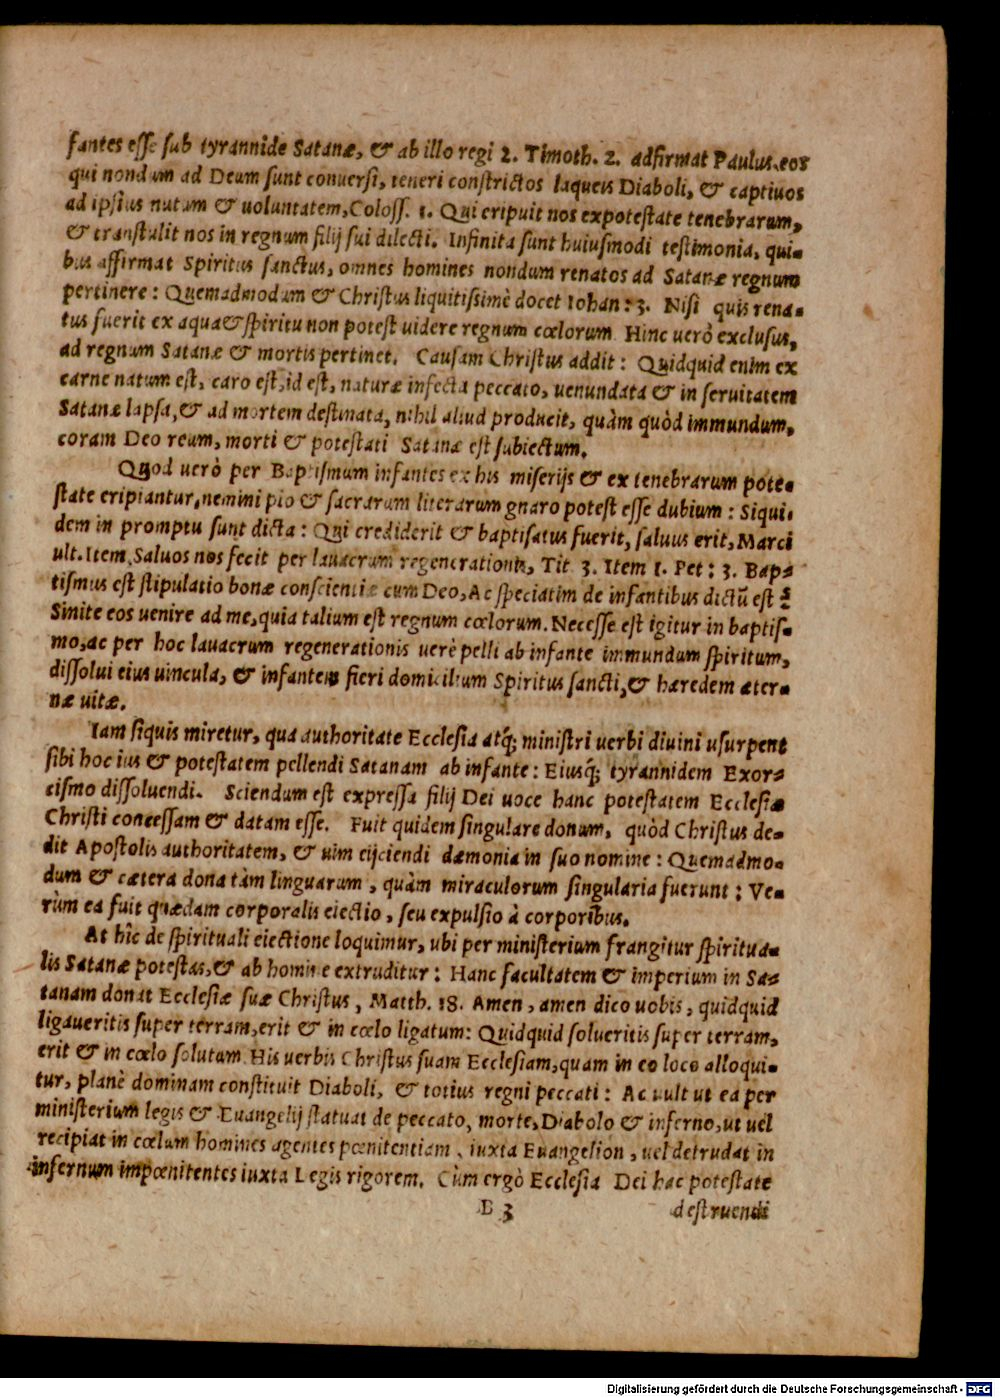 fantes esse sub tyrannide Satanæ, & ab illo regi 2. Timoth. 2. adfirmat Paulus, eos
qui nondum ad Deum sunt conuersi, teneri constrictos laqueis Diaboli, & captiuos
ad ipsius nutum & uoluntatem, Coloss. 1. Qui eripuit nos ex potestate tenebrarum,
& transtulit nos in regnum filij sui dilecti. Infinita sunt huiusmodi testimonia, qui-
bus affirmat Spiritus sanctus, omnes homines nondum renatos ad Satanæ regnum
pertinere: Quemadmodum & Christus liquitissimè docet Iohan: 3. Nisi quis rena-
tus fuerit ex aqua & spiritu non potest uidere regnum cœlorum. Hinc uerò exclusus,
ad regnum Satanæ & mortis pertinet. Causam Christus addit: Quidquid enim ex
carne natum est, caro est, id est, naturæ infecta peccato, uenundata & in seruitatem
Satanæ lapsa, & ad mortem destinata, nihil aliud producit, quàm quòd immundum,
coram Deo reum, morti & potestati Satanæ est subiectum.
Quod uerò per Baptismum infantes ex his miserijs & ex tenebrarum pote-
state eripiantur, nemini pio & sacrarum literarum gnaro potest esse dubium: Siqui-
dem in promptu sunt dicta: Qui crediderit & baptisatus fuerit, saluus erit, Marci
ult. Item, Saluos nos fecit per lauacrum regenerationis, Tit 3. Item 1. Pet: 3. Bap-
tismus est stipulatio bonæ conscientiæ cum Deo, Ac speciatim de infantibus dictũ est:
Sinite eos uenire ad me, quia talium est regnum cœlorum. Necesse est igitur in baptis-
mo, ac per hoc lauacrum regenerationis uerè pelli ab infante immundum spiritum,
dissolui eius uincula, & infantem fieri domicilium Spiritus sancti, & hæredem æter-
næ uitæ.
Iam siquis miretur, qua authoritate Ecclesia atq́; ministri uerbi diuini usurpent
sibi hoc ius & potestatem pellendi Satanam ab infante: Eiusq́; tyrannidem Exor-
cismo dissoluendi. Sciendum est expressa filij Dei uoce hanc potestatem Ecclesiæ
Christi concessam & datam esse. Fuit quidem singulare donum, quòd Christus de-
dit Apostolis authoritatem, & uim eijciendi dæmonia in suo nomine: Quemadmo-
dum & cætera dona tàm linguarum, quàm miraculorum singularia fuerunt: Ve-
rùm ea fuit quædam corporalis eiectio, seu expulsio à corporibus.
At hîc de spirituali eiectione loquimur, ubi per ministerium frangitur spiritua-
lis Satanæ potestas, & ab homine extruditur: Hanc facultatem & imperium in Sa-
tanam donat Ecclesiæ suæ Christus, Matth. 18. Amen, amen dico uobis, quidquid
ligaueritis super terram, erit & in cœlo ligatum: Quidquid solueritis super terram,
erit & in cœlo solutum. His uerbis Christus suam Ecclesiam, quam in eo loco alloqui-
tur, planè dominam constituit Diaboli, & totius regni peccati: Ac uult ut ea per
ministerium legis & Euangelij statuat de peccato, morte, Diabolo & inferno, ut uel
recipiat in cœlum homines agentes pœnitentiam, iuxta Euangelion, uel detrudat in
infernum impœnitentes iuxta Legis rigorem. Cùm ergò Ecclesia Dei hac potestate
B 3 destruendi
Digitalisierung gefördert durch die Deutsche Forschungsgemeinschaft - DFG